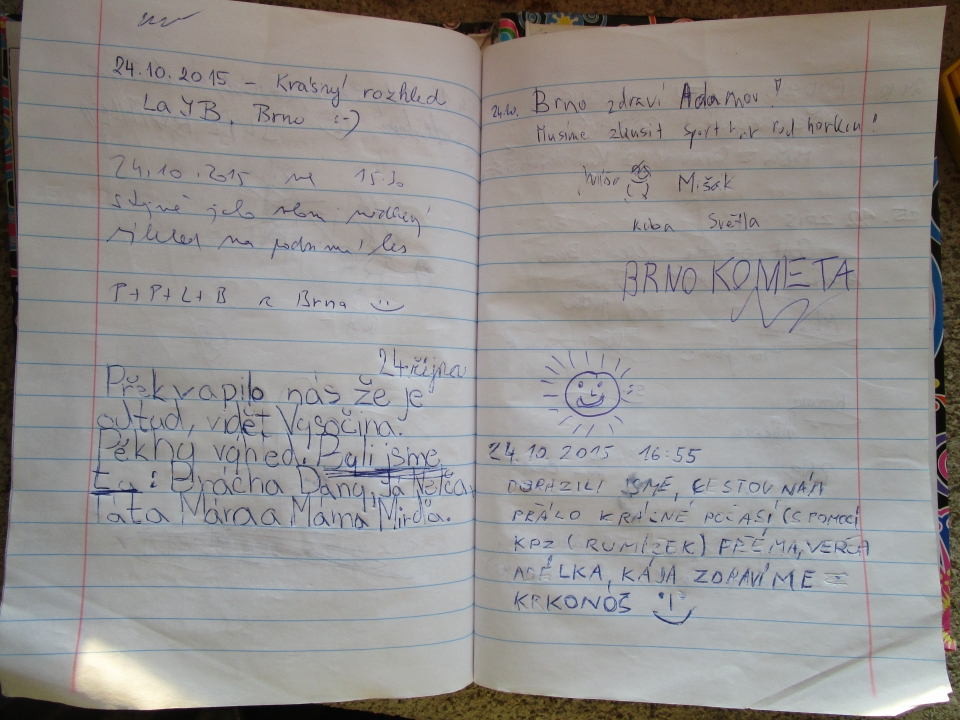 24.10.2015 - Krásný rozhled
La JB, Brno :-)
24.10.2015 na 1530
stejně jako na podzimní les
P+P+L+B z Brna
24 října
Překvapilo nás že je
odtud, vidět Vysočina.
Pěkný výhled. Byli jsme
tu: Brácha Dany, Já
Táta Mára a Máma Mirďa.
24.10. Brno zdraví Adamov!
Musíme zkusit sport bar pod horkou!
Mišák
Kuba Světla
BRNO KOMETA
24.10.2015 16:55
DORAZILI JSME, CESTOU NÁM
PŘÁLO KRÁSNÉ POČASÍ (S POMOCÍ
KPZ (RUMÍZEK) PŘÉMA, VERČA
ADÉLKA, KÁJA ZDRAVÍME Z
KRKONOŠ